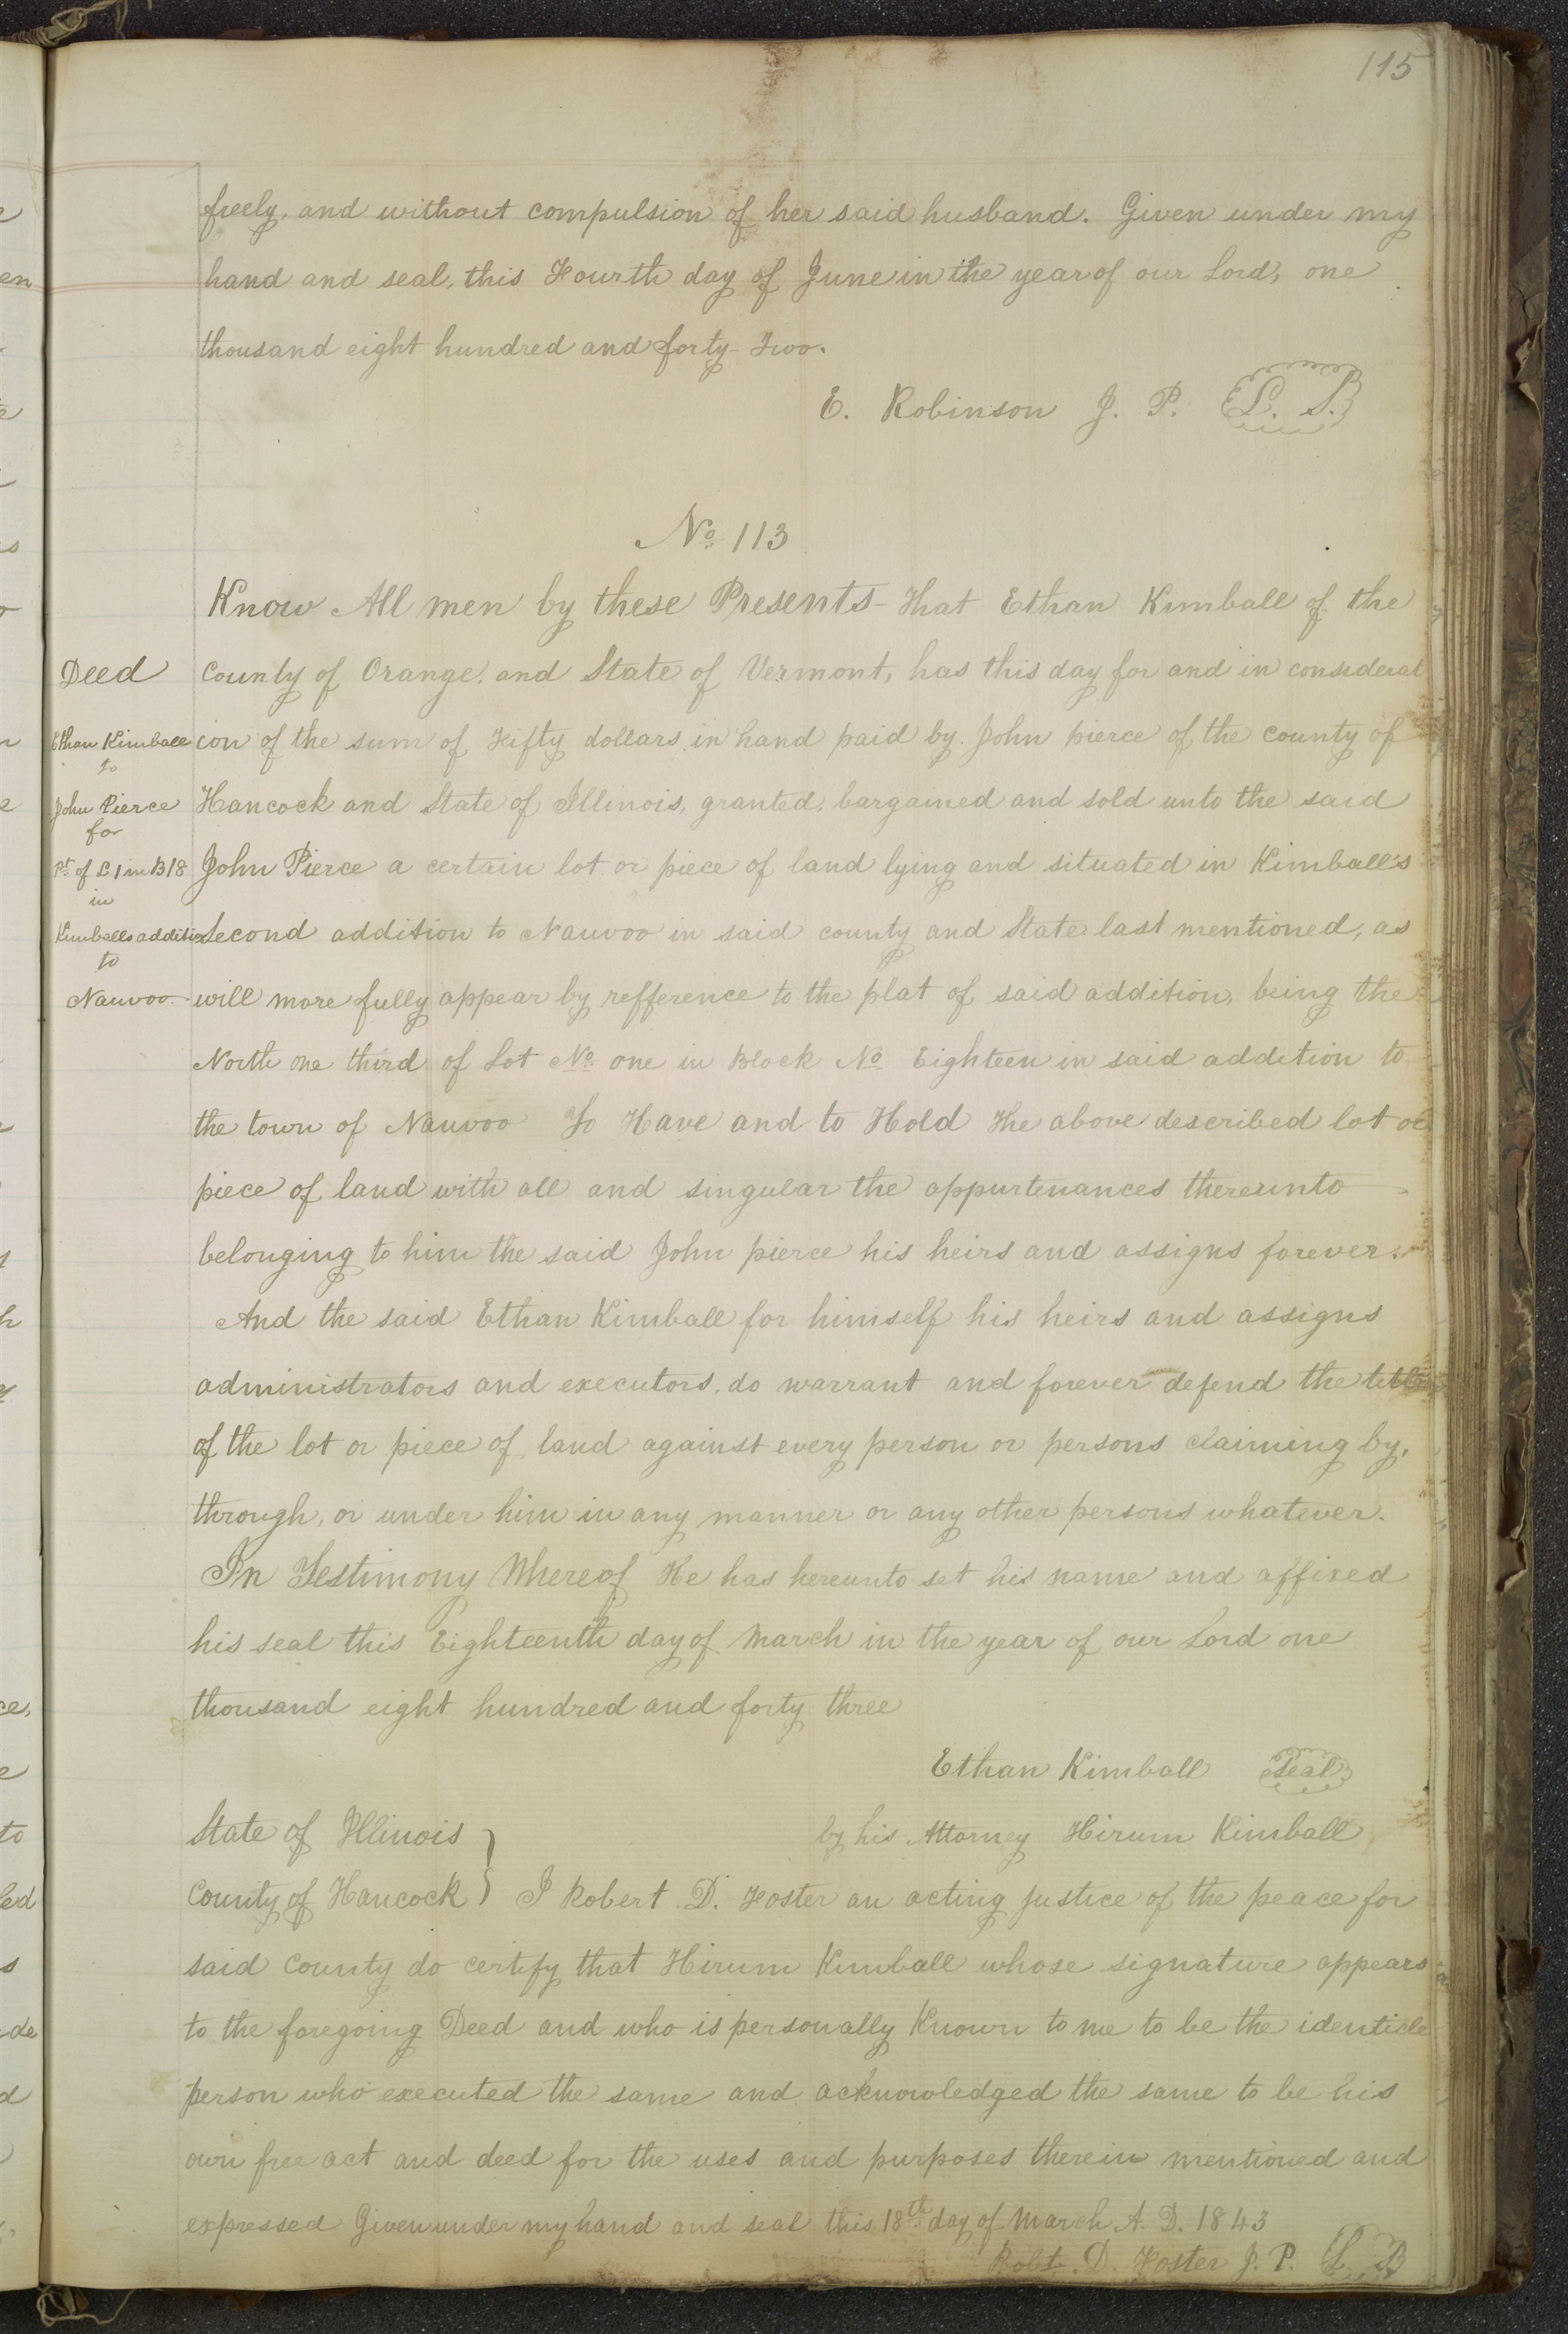 115
freely, and without compulsion of her said husband. Given under my
hand and seal, this Fourth day of June in the year of our Lord, one
thousand eight hundred and forty-Two.
E. Robinson J. P. L. S.
No 113
Know All men by these Presents - That Ethan Kimball of the
Deed
County of Orange, and State of Vermont, has this day for and in considerat
Ethan Kimball
cion of the sum of Fifty dollars in hand paid by John pierce of the county of
to
John Pierce
Hancock and State of Illinois, granted, bargained and sold unto the said
for
Pt of L 1 in B 18
John Pierce a certain lot or piece of land lying and situated in Kimball's
in
Kimballs addition
Second addition to Nauvoo in said county and State last mentioned, as
to
Nauvoo.
will more fully appear by refference to the plat of said addition, being the
North one third of Lot No one in Block No Eighteen in said addition to
the town of Nauvoo To Have and to Hold The above described lot or
piece of land with all and singular the appurtenances thereunto
belonging to him the said John pierce his heirs and assigns forever.
And the said Ethan Kimball for himself his heirs and assigns
administrators and executors, do warrant and forever defend the title
of the lot or piece of land against every person or persons claiming by,
through, or under him in any manner or any other persons whatever.
In Testimony Whereof He has hereunto set his name and affixed
his seal this Eighteenth day of March in the year of our Lord one
thousand eight hundred and forty three
Ethan Kimball Seal
State of Illinois
by his Attorney Hirum Kimball
County of Hancock } I Robert D. Foster an acting justice of the peace for
said County do certify that Hirum Kimball whose signature appears
to the foregoing Deed and who is personally Known to me to be the identicle
person who executed the same and acknowledged the same to be his
own free act and deed for the uses and purposes therein mentioned and
expressed Given under my hand and seal this 18th day of March A. D. 1843
Robt. D. Foster J. P. L. S